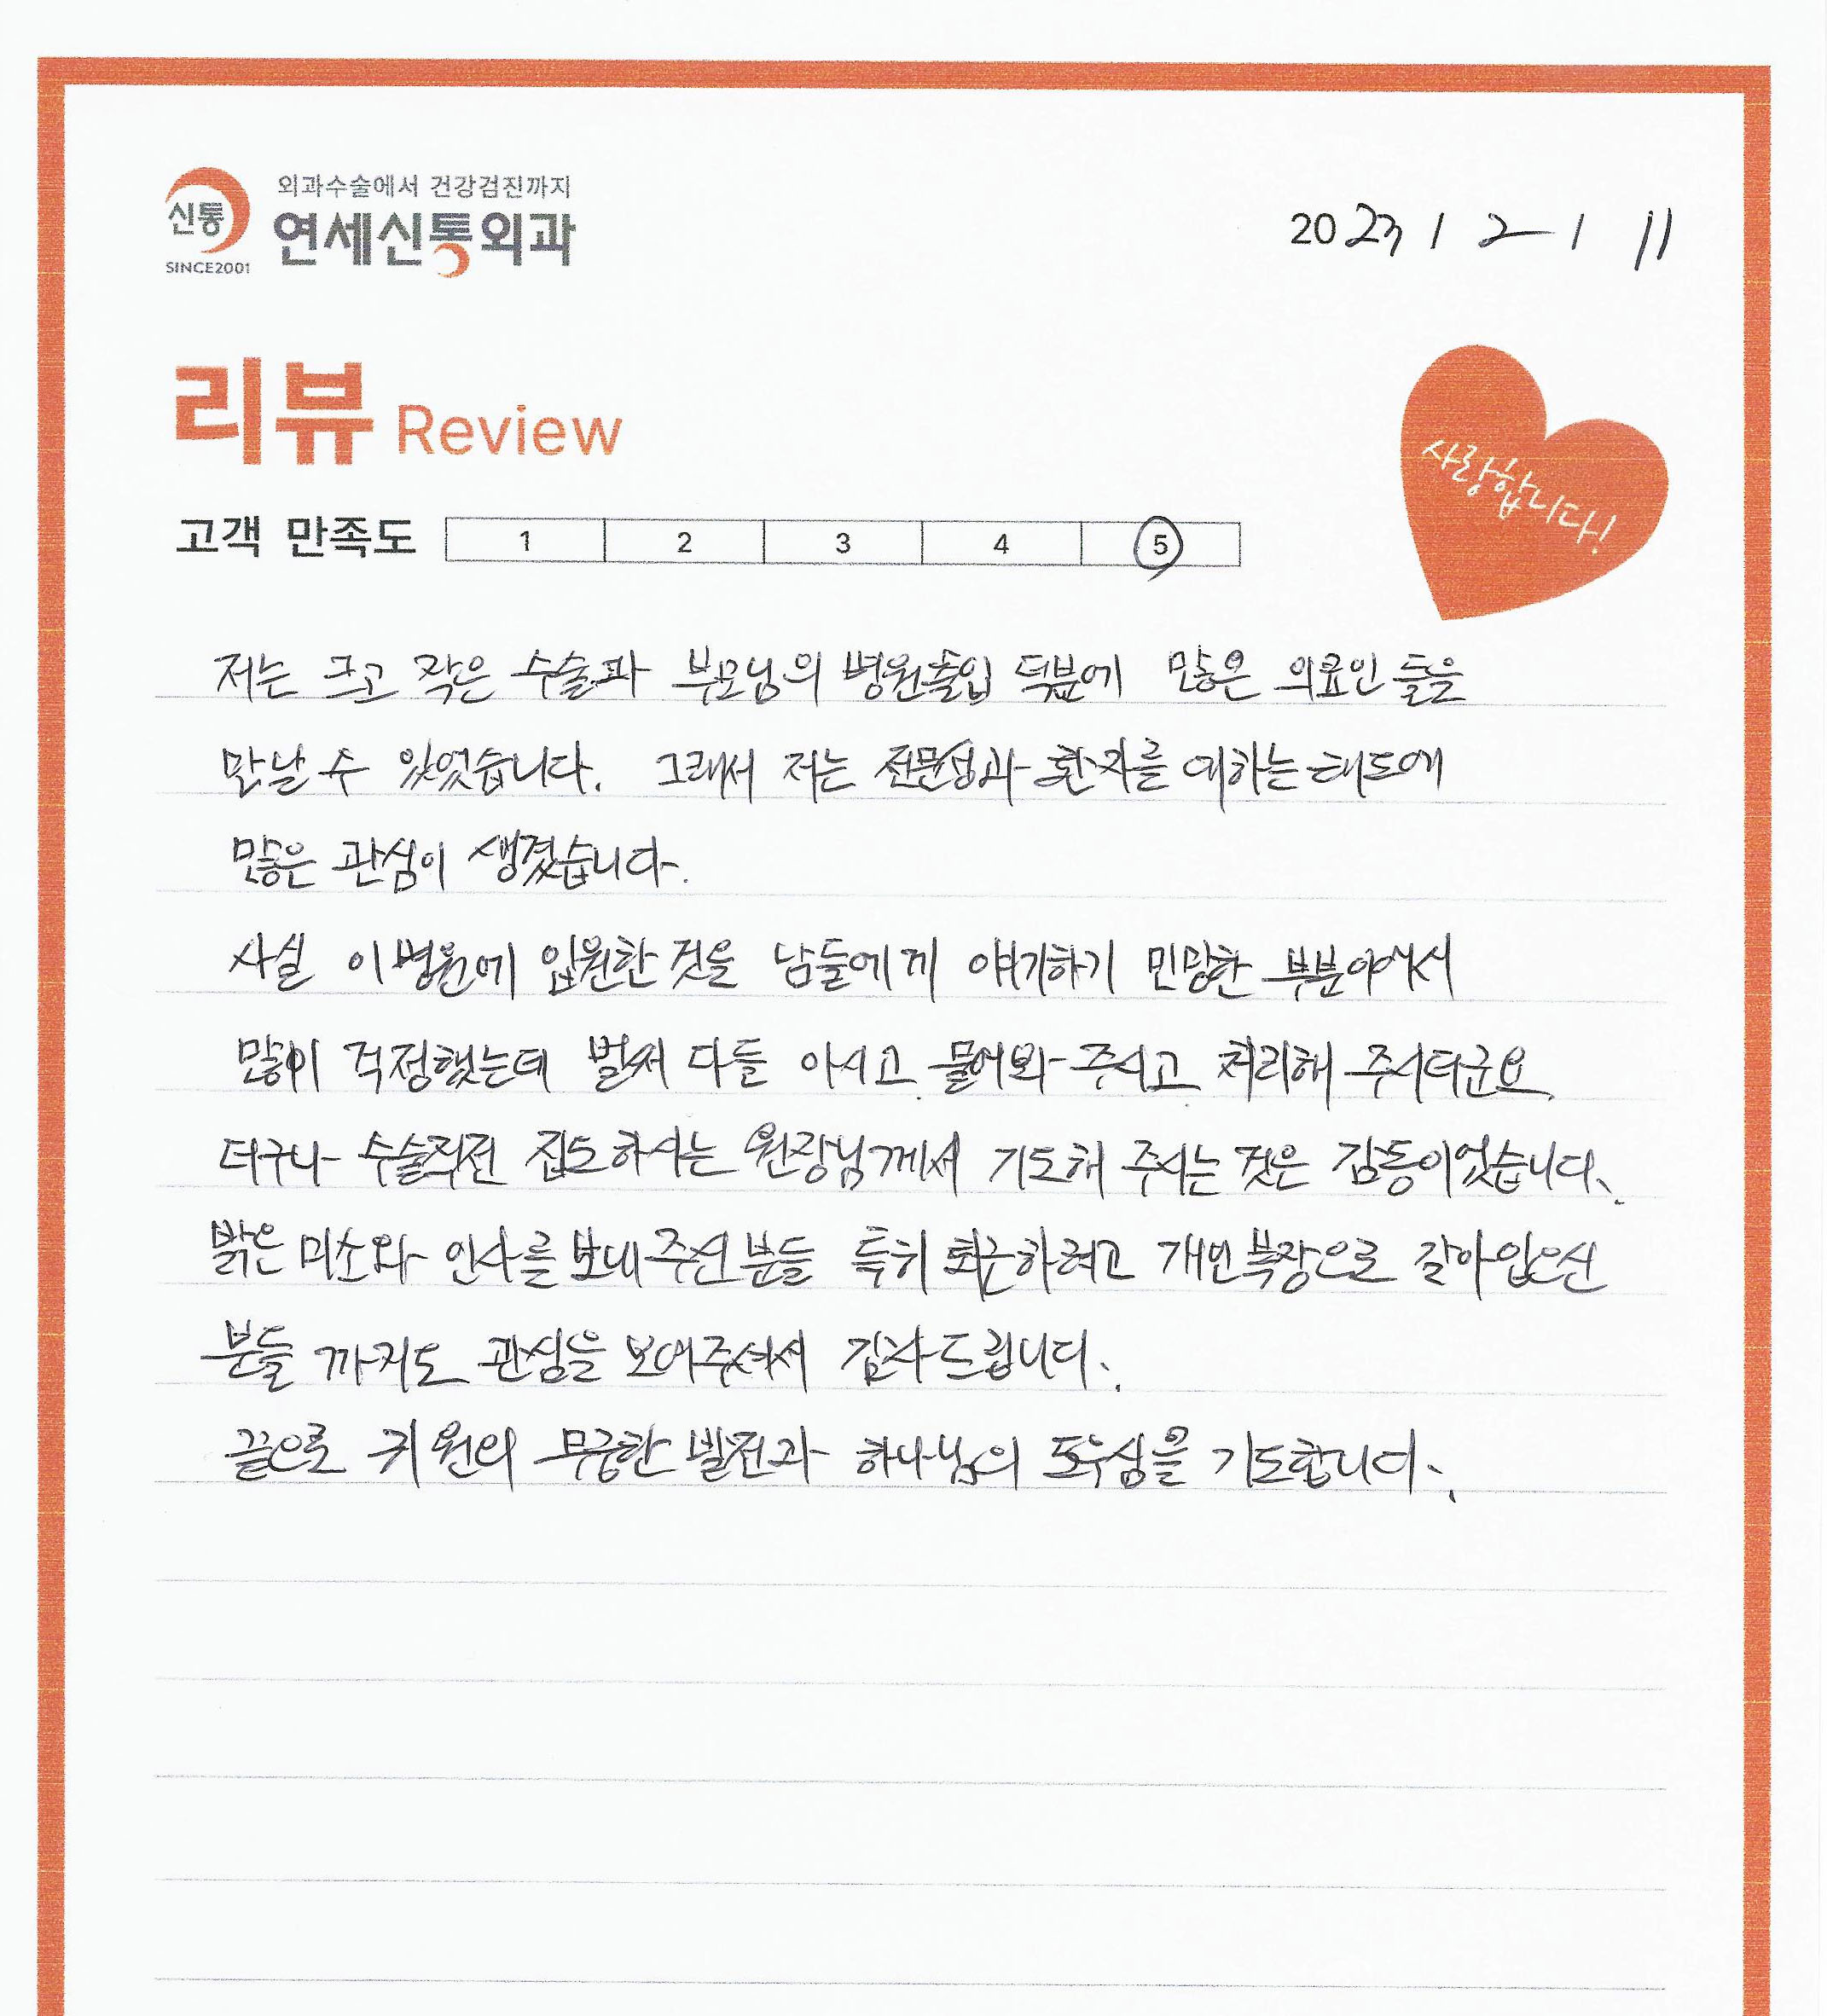 신통
SINCE2001
외과수술에서 건강검진까지
연세신통외과
2023 / 2 / 11
리뷰 Review
사랑합니다!
고객 만족도 1 2 3 4 5
저는 크고 작은 수술과 부모님의 병원출입 덕분에 많은 의료인 들을
만날 수 있었습니다. 그래서 저는 전문성과 환자를 대하는 태도에
많은 관심이 생겼습니다.
사실 이 병원에 입원한 것을 남들에게 얘기하기 민망한 부분이어서
많이 걱정했는데 벌써 다들 아시고 물어봐 주시고 처리해 주시더군요.
더구나 수술직전 집도하시는 원장님께서 기도해 주시는 것은 감동이었습니다.
밝은 미소와 인사를 보내주신 분들 특히 퇴근하려고 개인복장으로 갈아입으신
분들 까지도 관심을 보여주셔서 감사드립니다.
끝으로 귀 원의 무궁한 발전과 하나님의 도우심을 기도합니다.